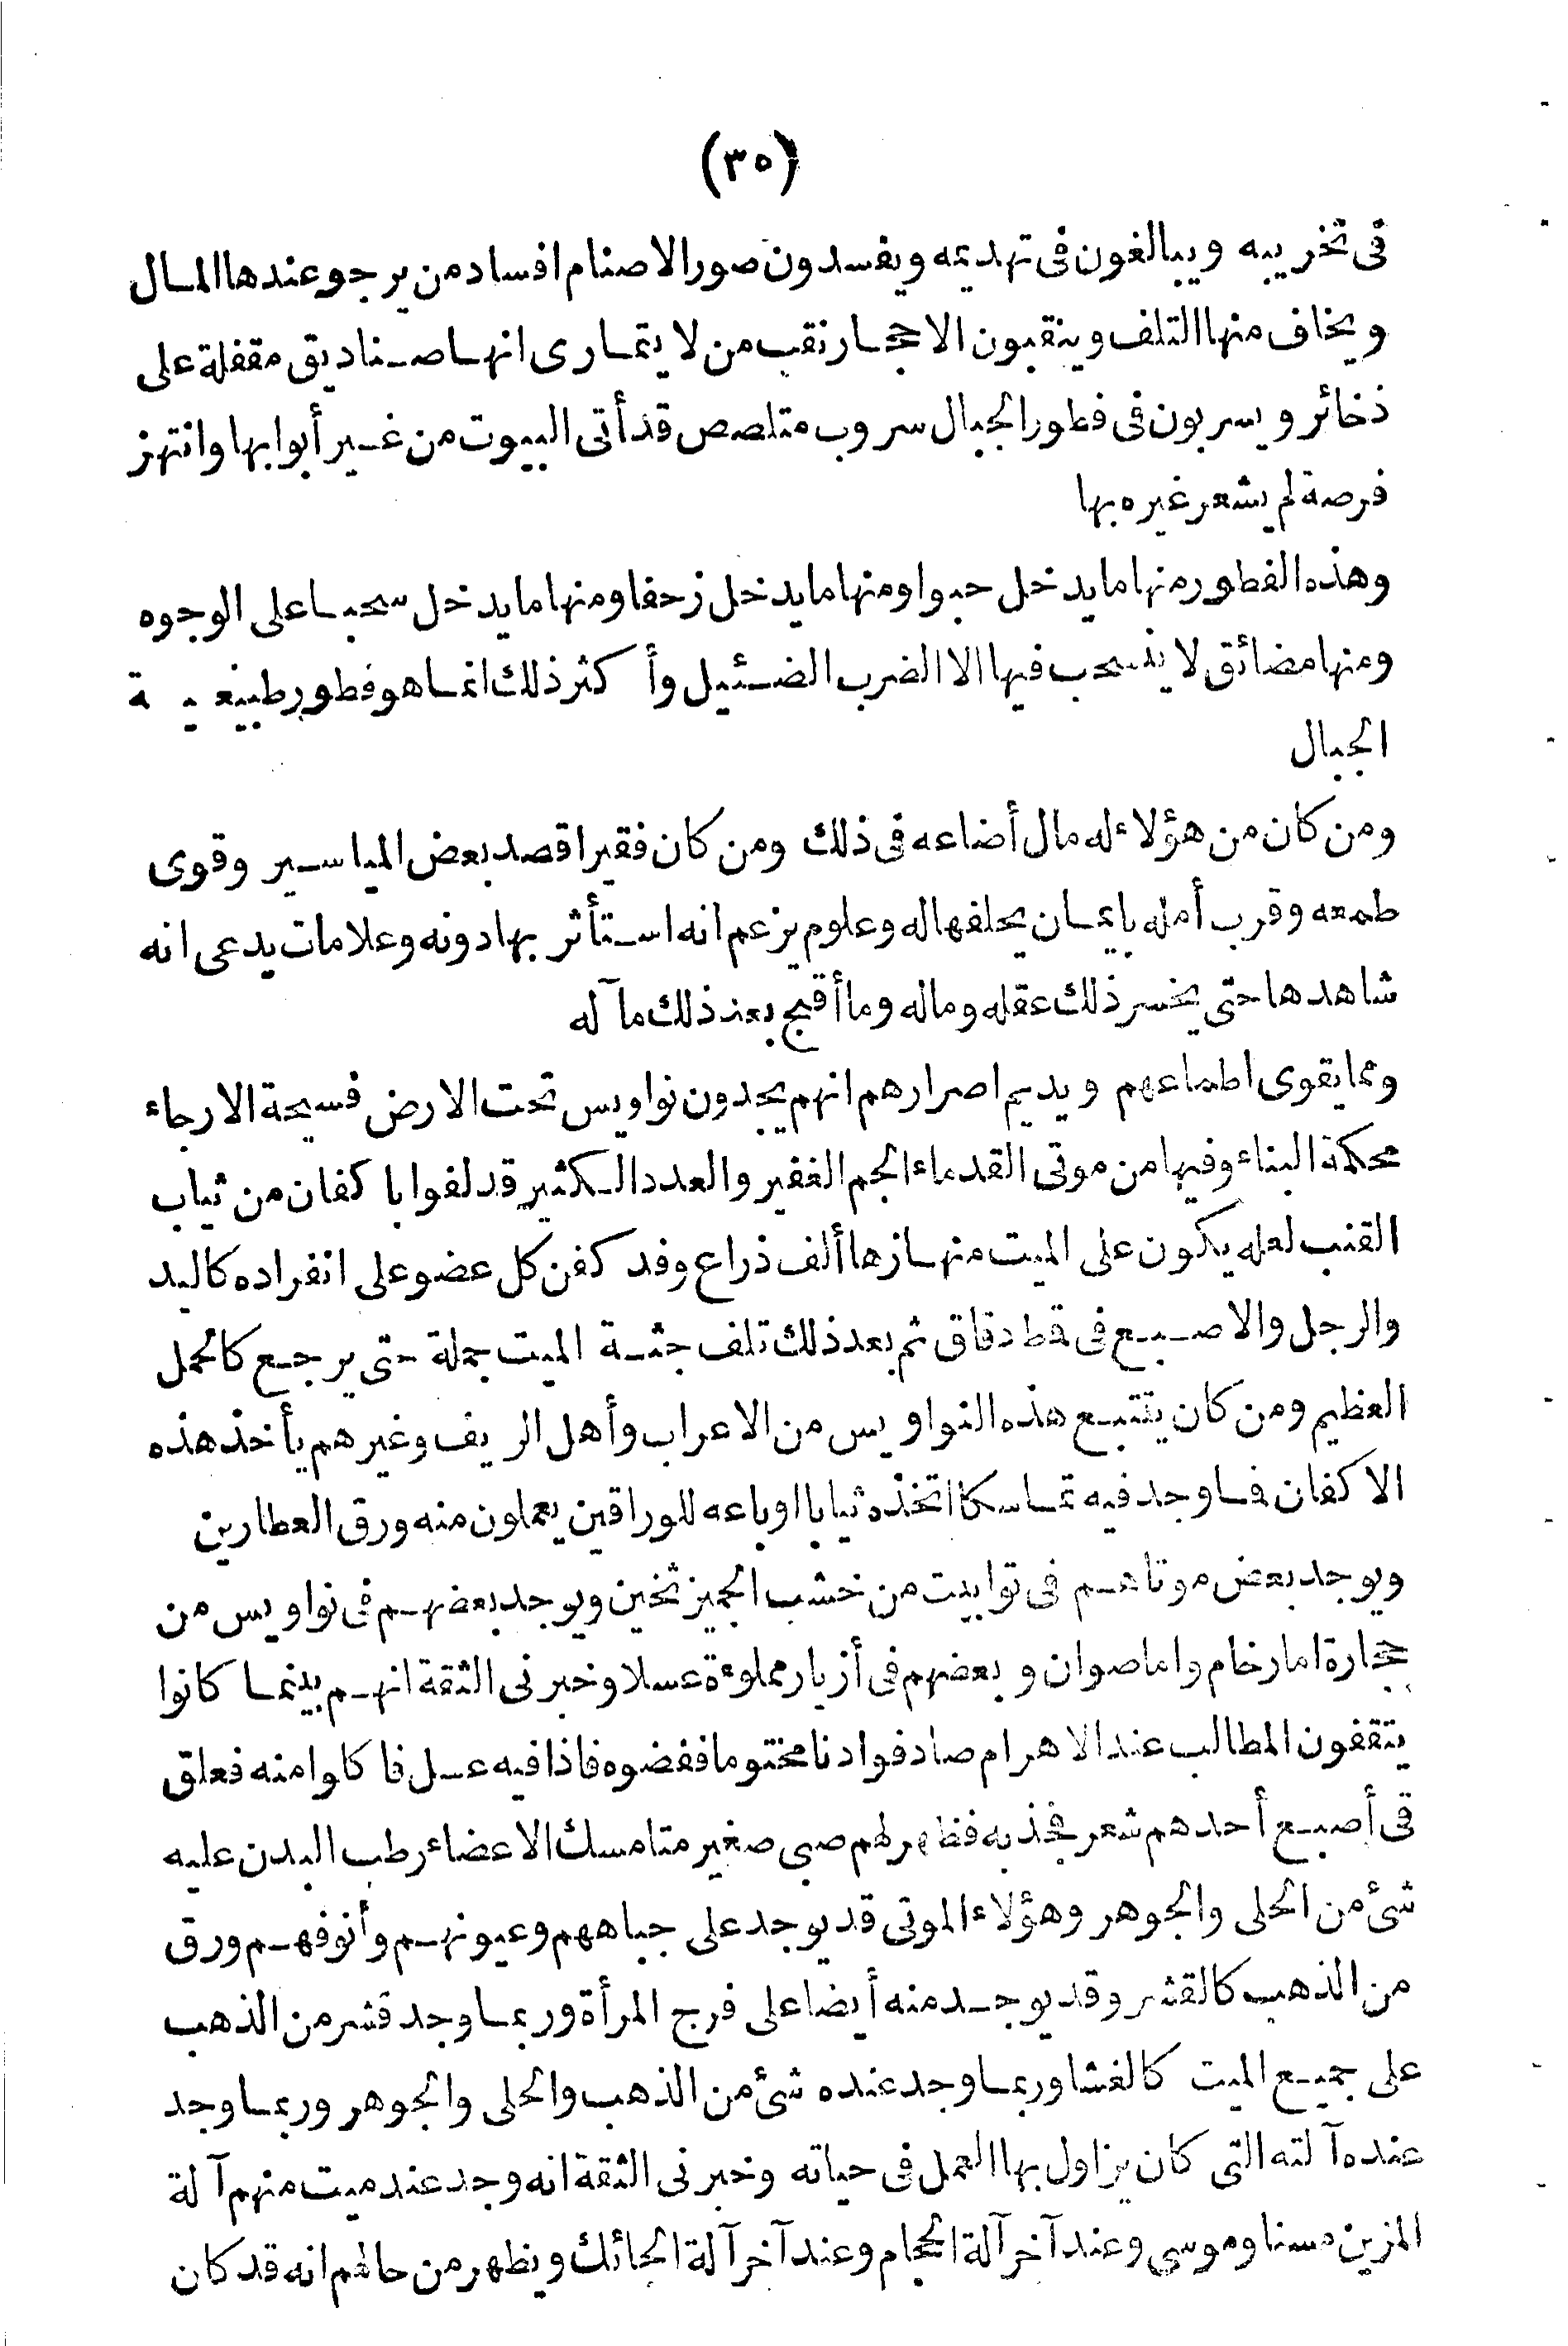 (٣٥)
فى تخريبه ويبالغون فى تهديمه ويفسدون صور الاصنام افساد من يرجو عندها المال
ويخاف منها التلف وينقبون الاحجار نقب من لا يتمارى انها صناديق مقفلة على
ذخائر ويسربون فى فطور الجبال سروب متلصص قد أتى البيوت من غير أبوابها وانتهز
فرصة لم يشعر غيره بها
وهذه الفطور منها ما يدخل حبوا ومنها ما يدخل زحفا ومنها ما يدخل سحبا على الوجوه
ومنها مضائق لا ينسحب فيها الا الضرب الضئيل وأكثر ذلك انما هو فطور طبيعية
الجبال
ومن كان من هؤلاء له مال أضاعه فى ذلك ومن كان فقيرا قصد بعض المياسير وقوى
طمعه وقرب أمله بايمان يحلفها له وعلوم يزعم انه استأثر بها دونه وعلامات يدعى انه
شاهدها حتى يخسر ذلك عقله وماله وما أقبح بعد ذلك مآله
ومما يقوى اطماعهم ويديم اصرارهم انهم يجدون نواويس تحت الارض فسيحة الارجاء
محكمة البناء وفيها من موتى القدماء الجم الغفير والعدد الكثير قد لفوا باكفان من ثياب
القنب لعله يكون على الميت منها زهاء ألف ذراع وقد كفن كل عضو على انفراده كاليد
والرجل والاصبع فى قط دقاق ثم بعد ذلك تلف جثة الميت جملة حتى يرجع كالحمل
العظيم ومن كان يتتبع هذه النواويس من الاعراب وأهل الريف وغيرهم يأخذ هذه
الاكفان فما وجد فيه تماسكا اتخذه ثيابا او باعه للوراقين يعملون منه ورق العطارين
ويوجد بعض موتاهم فى توابيت من خشب الجميز ثخين ويوجد بعضهم فى نواويس من
حجارة اما رخام واما صوان وبعضهم فى أزيار مملوءة عسلا وخبرنى الثقة انهم بينما كانوا
يتقفون المطالب عند الاهرام صادفوا دنا مختوما ففضوه فاذا فيه عسل فاكلوا منه فعلق
فى أصبع أحدهم شعر فجذبه فظهر لهم صبى صغير متماسك الاعضاء رطب البدن عليه
شئ من الحلى والجوهر وهؤلاء الموتى قد يوجد على جباههم وعيونهم وأنوفهم ورق
من الذهب كالقشر وقد يوجد منه أيضا على فرج المرأة وربما وجد قشر من الذهب
على جميع الميت كالغشا وربما وجد عنده شئ من الذهب والحلى والجوهر وربما وجد
عنده آلته التى كان يزاول بها العمل فى حياته وخبرنى الثقة انه وجد عند ميت منهم آلة
المزين مسنا وموسى وعند آخر آلة الحجام وعند آخر آلة الحائك ويظهر من حالهم انه قد كان